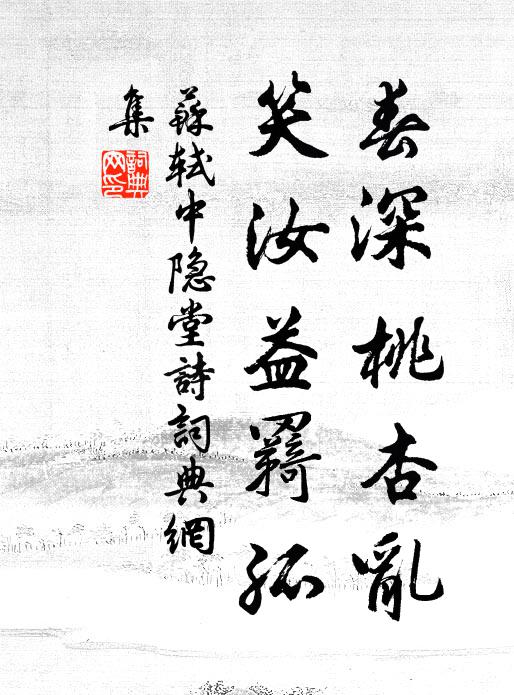 春深桃杏亂
笑汝益羇孤
蘇軾中隐堂詩詞典網
集
詞典
网印